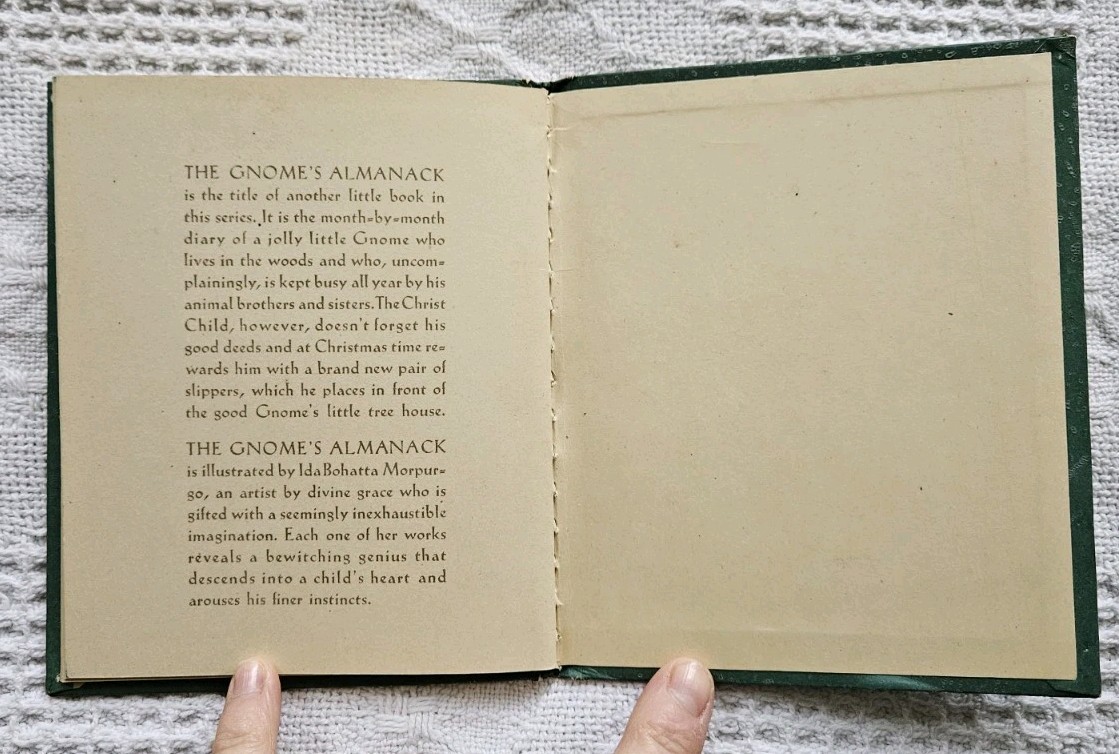 THE GNOME'S ALMANACK
is the title of another little book in
this series. It is the month=by=month
diary of a jolly little Gnome who
lives in the woods and who, uncom=
plainingly, is kept busy all year by his
animal brothers and sisters. The Christ
Child, however, doesn't forget his
good deeds and at Christmas time re=
wards him with a brand new pair of
slippers, which he places in front of
the good Gnome's little tree house.
THE GNOME'S ALMANACK
is illustrated by Ida Bohatta Morpur=
go, an artist by divine grace who is
gifted with a seemingly inexhaustible
imagination. Each one of her works
reveals a bewitching genius that
descends into a child's heart and
arouses his finer instincts.